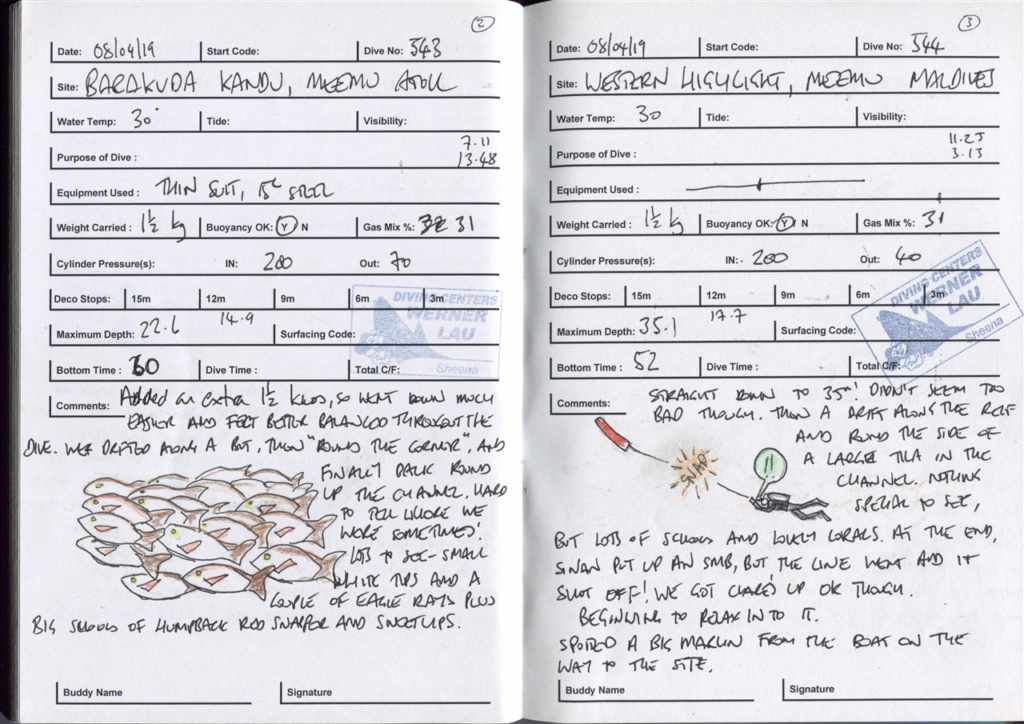 2
Date: 08/04/19 Start Code: Dive No: 543
Site: BARAKUDA KANDU, MEEMU ATOLL
Water Temp: 30° Tide: Visibility:
7.11
Purpose of Dive : 13.48
Equipment Used : THIN SUIT, 15L STEEL
Weight Carried : 1½ kg Buoyancy OK: Y N Gas Mix %: 31
Cylinder Pressure(s): IN: 200 Out: 70
Deco Stops: 15m 12m 9m 6m 3m
Maximum Depth: 22.6 14.9 Surfacing Code:
Bottom Time : 60 Dive Time : Total C/F:
DIVING CENTERS
WERNER
LAU
Sheena
Comments: Added an extra 1½ kilos, so WENT DOWN MUCH
EASIER AND FELT BETTER BALANCED THROUGHOUT THE
DIVE. WE DRIFTED ALONG A BIT, THEN "ROUND THE CORNER", AND
FINALLY BACK ROUND
UP THE CHANNEL. HARD
TO TELL WHERE WE
WERE SOMETIMES!
LOTS TO SEE - SMALL
WHITE TIPS AND A
COUPLE OF EAGLE RAYS PLUS
BIG SCHOOLS OF HUMPBACK RED SNAPPER AND SWEETLIPS.
Buddy Name Signature
3
Date: 08/04/19 Start Code: Dive No: 544
Site: WESTERN HIGHLIGHT, MEEMU MALDIVES
Water Temp: 30 Tide: Visibility:
11.25
Purpose of Dive : 3.13
Equipment Used :
Weight Carried : 1½ kg Buoyancy OK: Y N Gas Mix %: 31
Cylinder Pressure(s): IN: 200 Out: 40
Deco Stops: 15m 12m 9m 6m 3m
Maximum Depth: 35.1 17.7 Surfacing Code:
Bottom Time : 52 Dive Time : Total C/F:
DIVING CENTERS
WERNER
LAU
Sheena
Comments: STRAIGHT DOWN TO 35m! DIDN'T SEEM TOO
BAD THOUGH. THEN A DRIFT ALONG THE REEF
AND ROUND THE SIDE OF
A LARGE TILA IN THE
CHANNEL. NOTHING
SPECIAL TO SEE,
SNAP
BUT LOTS OF SCHOOLS AND LOVELY CORALS. AT THE END,
SINAN PUT UP AN SMB, BUT THE LINE WENT AND IT
SHOT OFF! WE GOT CLARE'S UP OK THOUGH.
BEGINNING TO RELAX INTO IT.
SPOTTED A BIG MARLIN FROM THE BOAT ON THE
WAY TO THE SITE.
Buddy Name Signature